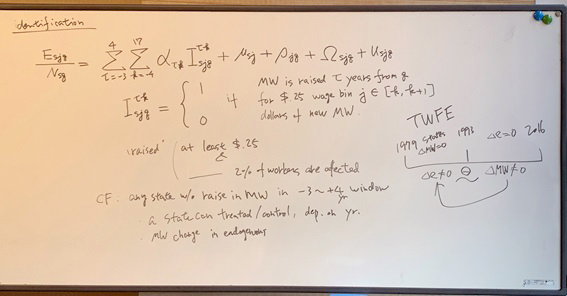 dentification
E_sjq / N_sq = Σ_{τ=-3}^{4} Σ_{k=-4}^{17} α_τk I^{τk}_sjq + μ_sj + ρ_jq + Ω_sjq + u_sjq
I^{τk}_sjq = { 1 if MW is raised τ years from q
0 for $.25 wage bin j ∈ [k, k+1]
dollars of new MW.
'raised' ( at least $.25
2% of workers are affected
CF: any state w/o raise in MW in -3 ~ +4 yr window
· a state can treated/control, dep. on yr.
· MW change in endogenous
TWFE
1979 states 1993 ΔR=0 2016
ΔMW=0
ΔR≠0 Θ ΔMW≠0